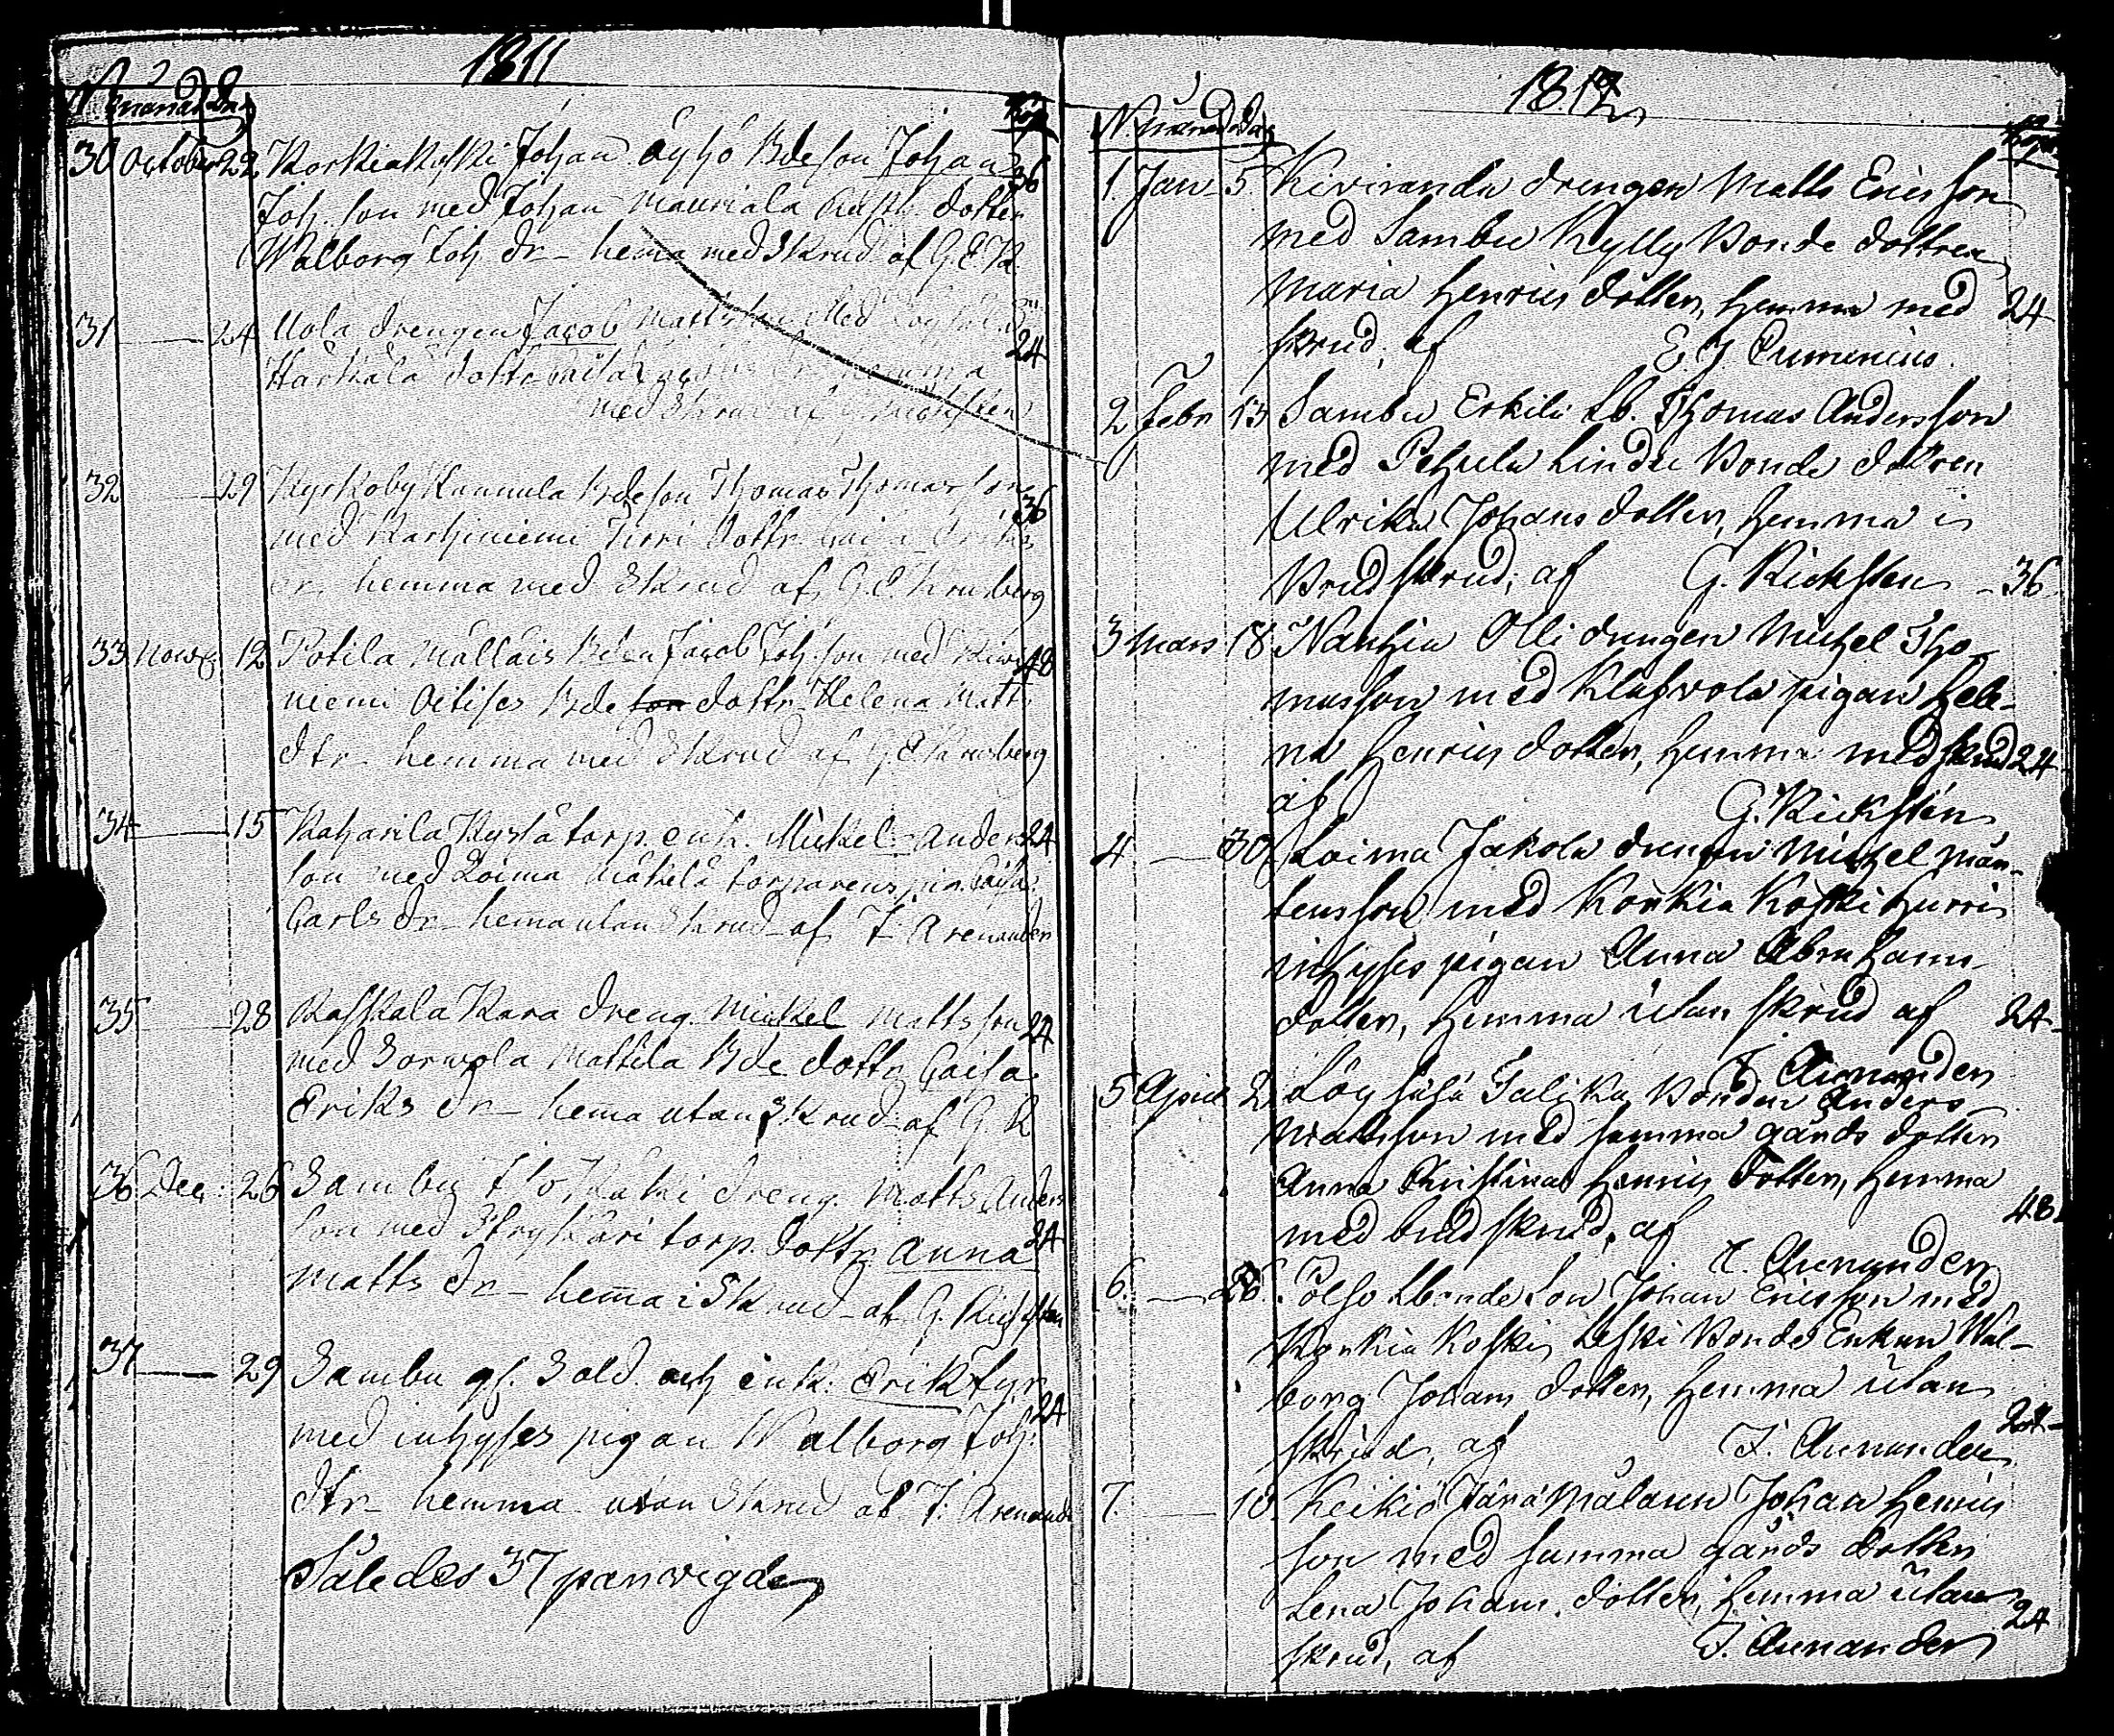 1811
N. månad. dag
Kop
30 October 22 Korkiakoski Johan Äyhö Bdeson Johan 36
Joh. son med Johan Mauriala dotter
Walborg Joh. dr - hema med Skrud af G. E. K.
31 — 24 Uola drengen Jacob Matts son med 24
Harkala dottr Caisa dr hemma
med Skrud af G. Rickstén
32 — 29 Kyrkoby Kannula Bdeson Thomas Thomasson 36
med Karhiniemi Tirri dottr Caisa Eriks
dr hemma med Skrud af G. E. Krusberg
33 Nowb 12 Potila Mallais Bden Jacob Joh. son med Kiwi 48
niemi Oitises Bde son dottr Helena Matts
dtr - hemma med Skrud af G. E. Krusberg
34 — 15 Kaharila Kystå torp. enk. Mickel Anders 24
son med Loima Mäkelä torparens pig. Caisa
Carls dr - hema utan Skrud - af F. Arenander
35 — 28 Raskala Kara dreng. Mickel Matts son 24
med Sorwola Mattila Bde dottr Caisa
Eriks dr - hema utan Skrud - af G. R
36 Dec: 26 Sambu Yli Kakki dreng. Matts Anders
son med Stryk kari torp. dottr Anna 24
Matts dr - hema i Skrud - af G. Rickstén
37 — 29 Sambu gf. Sold. och enk: Erik Fyr 24
med inhyses pigan Walborg Joh:
dtr - hemma utan Skrud af F: Arenander
Således 37 par wigde
1812
N. månad dag
Kop.
1. Jan 5. Kiviranda drengen Matts Ericsson
med Sambu Kylly Bonde dottren
Maria Henrics dotter, hemma med 24
skrud, af E. J. Pumenius.
2 Febr 13 Sambu Erkilä Lb. Thomas Andersson
med Pehula Lindu Bonde dottren
Ulrika Johans dotter, hemma i
Brudskrud; af G. Rickstén - 36
3 Mars 18 Nanhia Olli drengen Michel Tho-
masson med Klafwola pigan Hele-
na Henrics dotter, hemma med skrud 24
af G. Rickstén
4 — 30 Loima Jakola drengen Michel Mår-
tensson med Korkia Koski Hurri
inhyses pigan Anna Abrahams
dotter, hemma utan skrud af 24
F. Arenander
5 April 2 Löysälä Talikka Bonden Anders
Mattsson med samma gårds dotter
Anna Christina Henrics dotter, hemma
med brudskrud, af 48.
F. Arenander
6. — 28. Pölsö Lbonde Son Johan Ericsson med
Korkia Koski Leski Bonde Enkan Wal-
borg Johans dotter, hemma utan
skrud, af F. Arenander 24
7. — 10 Keikiö Järä Målaren Johan Henrics
son med samma gårds dotter
Lena Johans. dotter, hemma utan 24
skrud, af F. Arenander